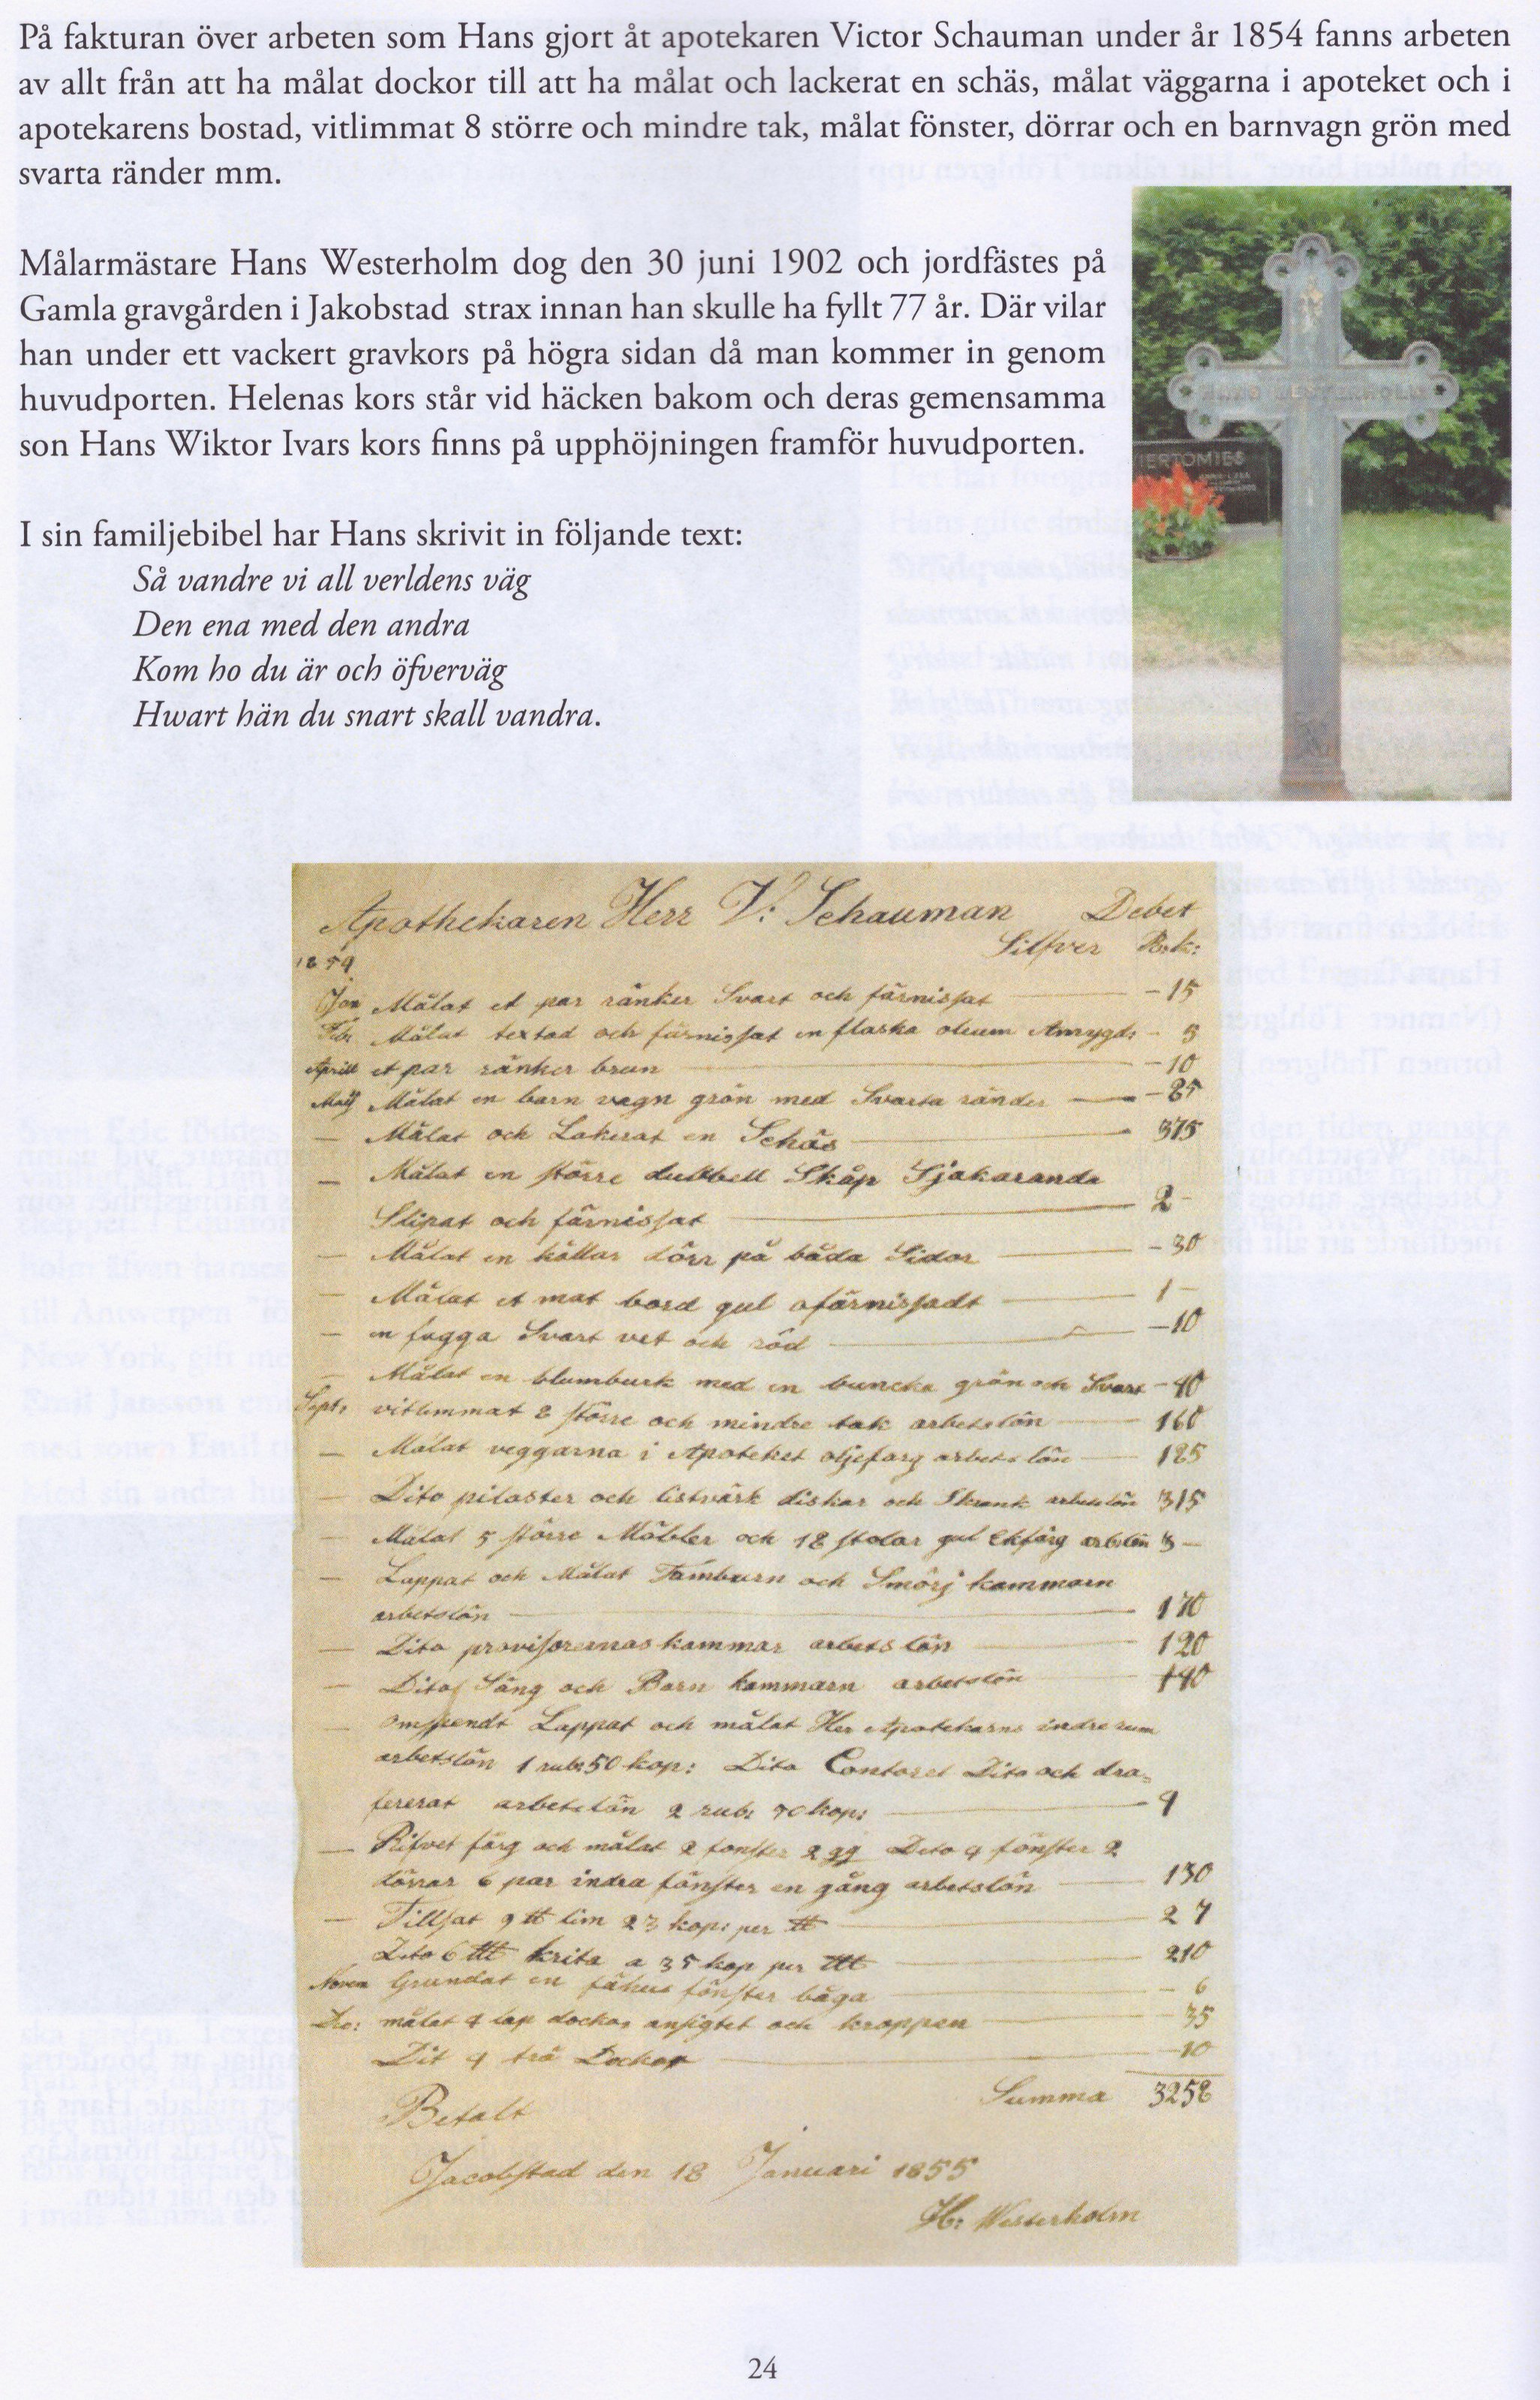 På fakturan över arbeten som Hans gjort åt apotekaren Victor Schauman under år 1854 fanns arbeten
av allt från att ha målat dockor till att ha målat och lackerat en schäs, målat väggarna i apoteket och i
apotekarens bostad, vitlimmat 8 större och mindre tak, målat fönster, dörrar och en barnvagn grön med
svarta ränder mm.
Målarmästare Hans Westerholm dog den 30 juni 1902 och jordfästes på
Gamla gravgården i Jakobstad strax innan han skulle ha fyllt 77 år. Där vilar
han under ett vackert gravkors på högra sidan då man kommer in genom
huvudporten. Helenas kors står vid häcken bakom och deras gemensamma
son Hans Wiktor Ivars kors finns på upphöjningen framför huvudporten.
VIERTOMIES
I sin familjebibel har Hans skrivit in följande text:
Så vandre vi all verldens väg
Den ena med den andra
Kom ho du är och öfverväg
Hwart hän du snart skall vandra.
Apothekaren Herr V: Schauman Debet
Silfver Rbk:
1854
Jan Målat et par ränker Svart och färnissat — 15
Feb: Målat textad och färnissat en flaska oleum Amygd: — 5
Aprill et par ränker brun — 10
Maij Målat en barn vagn grön med Svarta ränder — 85
— Målat och Lakerat en Schäs — 375
— Målat en större dubbell Skåp Sjakaranda
Slipat och färnissat — 2 -
— Målat en källar dörr på båda Sidor — 30
— Målat et mat bord gul ofärnissadt — 1 -
— en fugga Svart vet och röd — 10
— Målat en blumburk med en buncka grön och Svart — 40
Sept: vitlimmat 8 större och mindre tak arbetslön — 160
— Målat veggarna i Apoteket oljefarg arbets lön — 185
— Dito pilaster och listvärk diskar och Skrank arbetslön 315
— Målat 5 större Möbler och 18 stolar gul Ekfärg arbetslön 3 —
— Lappat och Målat Tamburn och Smörj kammarn
arbetslön — 170
— Dito provisorernas kammar arbets lön — 120
— Dito Säng och Barn kammarn arbetslön — 140
— omspendt Lappat och målat Her Apotekarns indre rum
arbetslön 1 rub: 50 kop: Dito Contoret Dito och dra-
fererat arbetslön 2 rub: 70 kop: — 4
— Rifvet färg och målat 2 fönster 2 gg Dito 4 fönster 2
dörrar 6 par indra fönster en gång arbetslön — 130
— Tillsat 9 ℔ lim 23 kop: per ℔ — 2 7
Dito 6 krita a 35 kop per — 210
Novem Grundat en fähus fönster båga — 6
De: målat 4 lap dockor ansigtet och kroppen — 35
Dit 4 trä Dockor — 10
Summa 3258
Betalt
Jacobstad den 18 Januari 1855
H: Westerholm
24